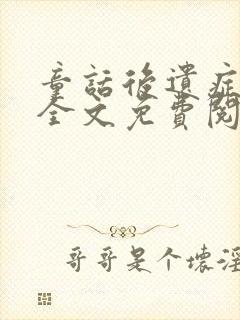 童話後遺症
全文免費閱
哥哥是个壞淫